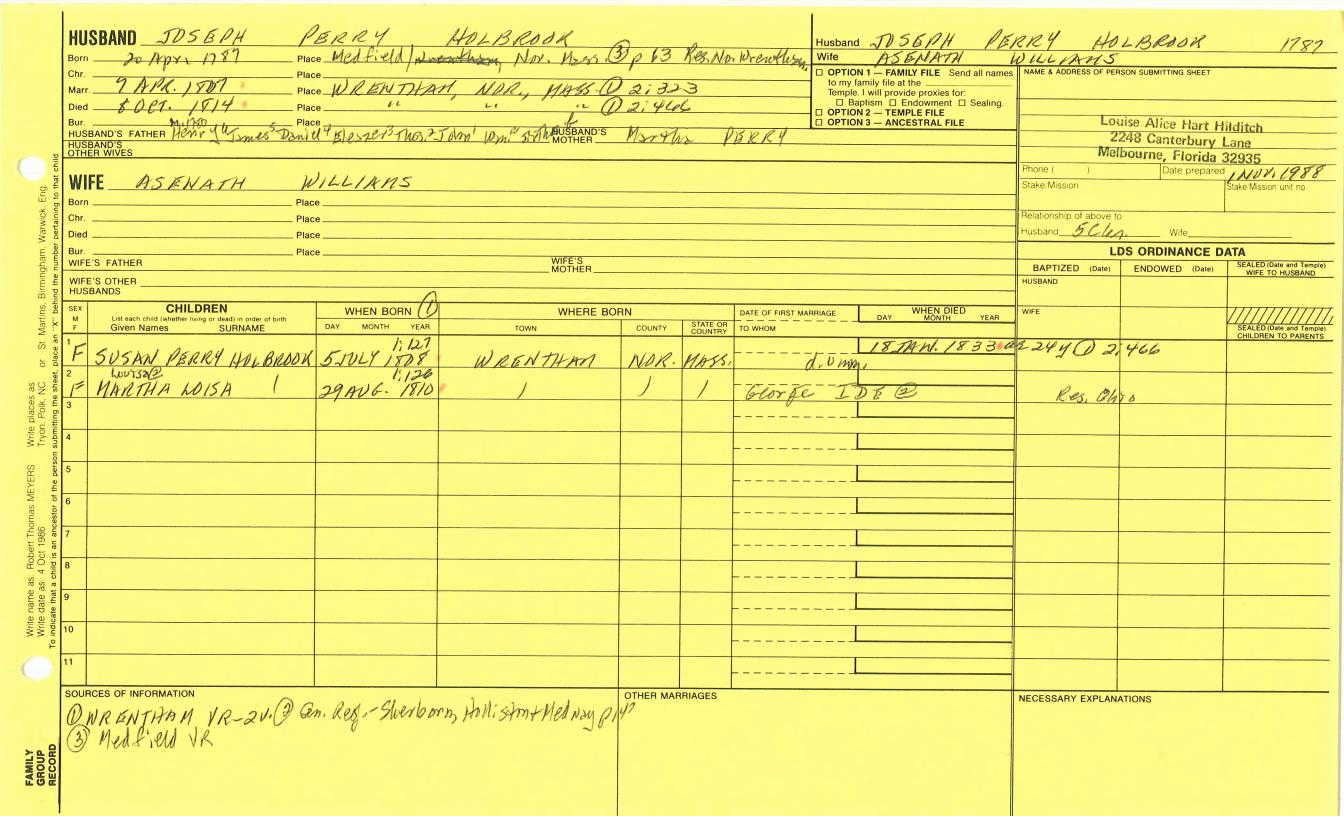 HUSBAND JOSEPH PERRY HOLBROOK
Born 20 Apr. 1787 Place Medfield/Wrentham, Nor. Mass. ③ p 63 Res. No. Wrentham
Chr. Place
Marr 9 APR. 1807 Place WRENTHAM, NOR., MASS. ① 2:323
Died 8 OCT. 1814 Place " " " ① 2:466
Bur. Place
HUSBAND'S FATHER Henry James Daniel Eleazer Thos. John HUSBAND'S MOTHER Martha PERRY
HUSBAND'S OTHER WIVES
Husband JOSEPH PERRY HOLBROOK 1787
Wife ASENATH WILLIAMS
☐ OPTION 1 — FAMILY FILE Send all names
to my family file at the
Temple. I will provide proxies for:
☐ Baptism ☐ Endowment ☐ Sealing.
☐ OPTION 2 — TEMPLE FILE
☐ OPTION 3 — ANCESTRAL FILE
NAME & ADDRESS OF PERSON SUBMITTING SHEET
Louise Alice Hart Hilditch
2248 Canterbury Lane
Melbourne, Florida 32935
Phone ( ) Date prepared 1 NOV. 1988
Stake/Mission Stake Mission unit no
Relationship of above to
Husband Wife
WIFE ASENATH WILLIAMS
Born Place
Chr. Place
Died Place
Bur. Place
WIFE'S FATHER WIFE'S MOTHER
WIFE'S OTHER HUSBANDS
LDS ORDINANCE DATA
BAPTIZED (Date) ENDOWED (Date) SEALED (Date and Temple) WIFE TO HUSBAND
HUSBAND
WIFE
SEALED (Date and Temple) CHILDREN TO PARENTS
SEX M F CHILDREN WHEN BORN ① WHERE BORN DATE OF FIRST MARRIAGE WHEN DIED
List each child (whether living or dead) in order of birth
Given Names SURNAME DAY MONTH YEAR TOWN COUNTY STATE OR COUNTRY TO WHOM DAY MONTH YEAR
1:127
1 F SUSAN PERRY HOLBROOK 5 JULY 1808 WRENTHAM NOR. MASS. d. unm. 18 JAN. 1833 ae 24 y ① 2:466
Louisa② 1:126
2 F MARTHA LOISA 29 AUG. 1810 George IDE ② Res. Ohio
3
4
5
6
7
8
9
10
11
SOURCES OF INFORMATION
① WRENTHAM VR-2v. ② Gen. Reg.- Sherborn, Holliston + Medway
③ Medfield VR
OTHER MARRIAGES
NECESSARY EXPLANATIONS
Write name as Robert Thomas MEYERS Write places as Tryon, Polk, NC or St Martins, Birmingham, Warwick, Eng.
Write date as 4 Oct 1986
To indicate that a child is an ancestor of the person submitting the sheet, place an "X" behind the number pertaining to that child
FAMILY
GROUP
RECORD